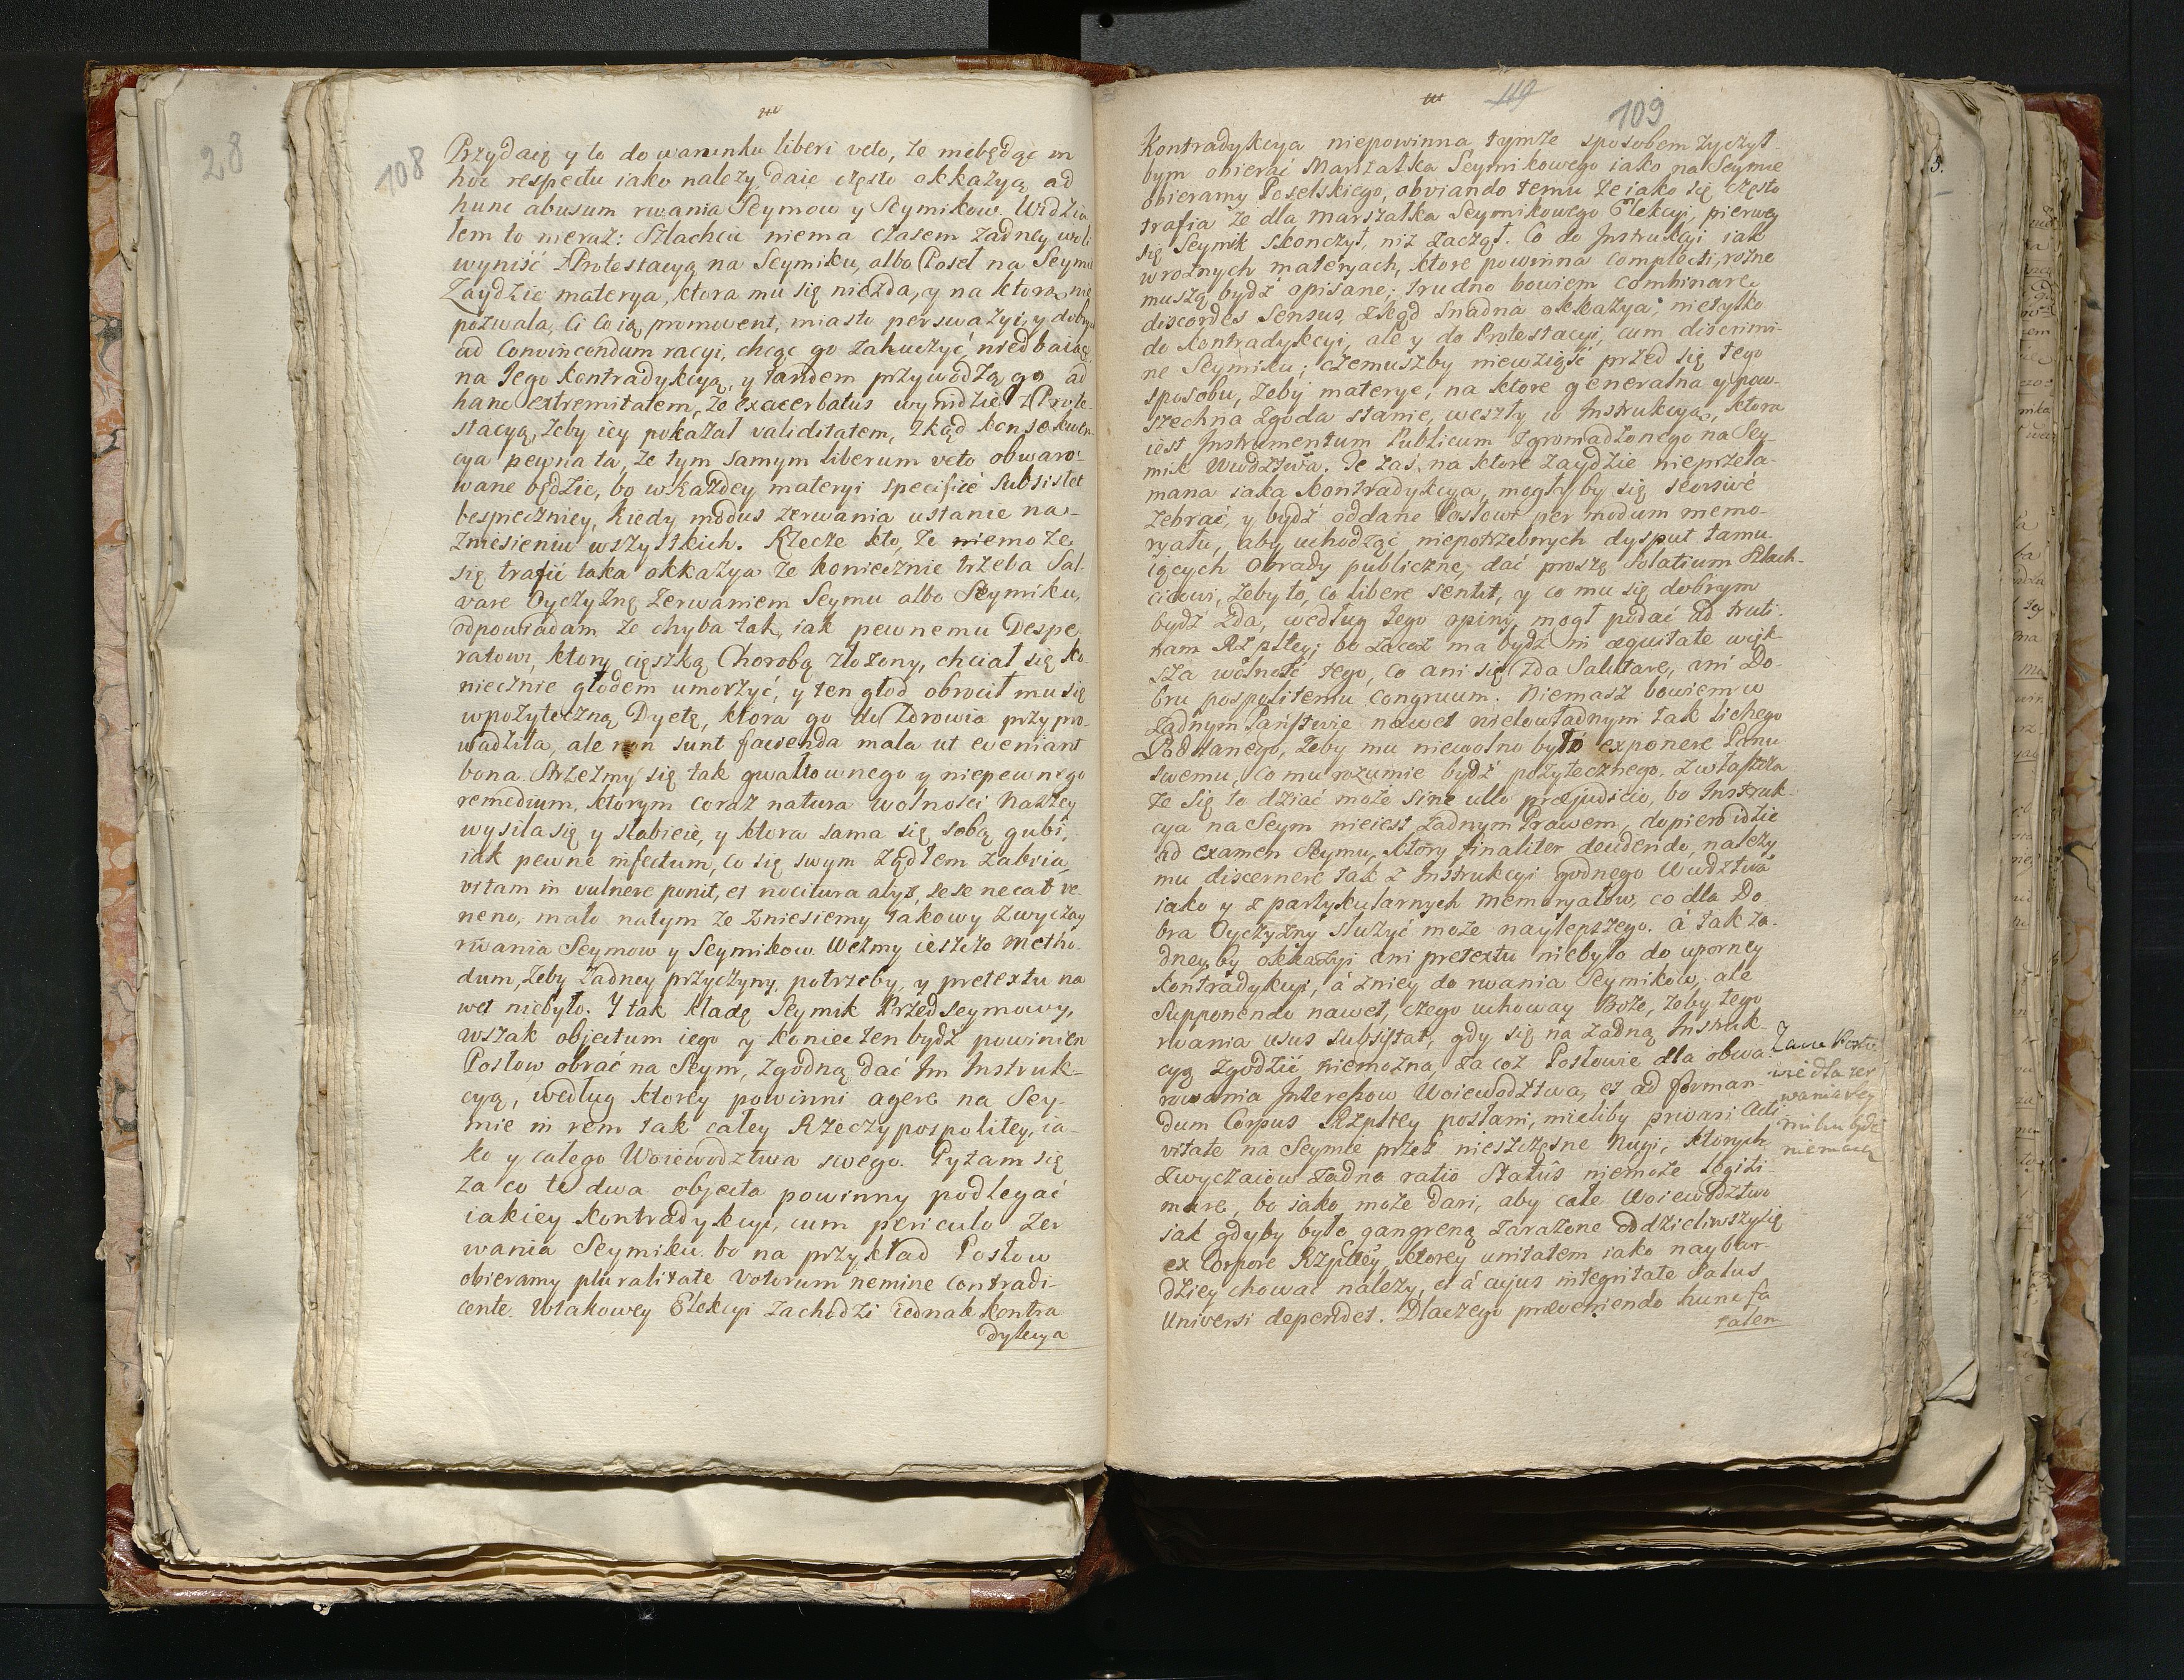 28
108
Przydaię y to do warunku liberi veto, że niebędąc in
hoc respectu iako należy, daie często okkazyą ad
hunc abusum rwania Seymow y Seymikow. Widzia
łem to nieraz: Szlachcic niema czasem żadney woli
wyniść z Protestacyą na Seymiku, albo Poseł na Seymie
Zaydzie materya, ktora mu się niezda, y na ktorą nie
pozwala, Ci co ią promovent, miasto perswazyi, y dobrych
ad Convincendum racyi, chcąc go zahuczyć, niedbaiąc
na Jego kontradykcyą, y tandem przywodzą go ad
hanc extremitatem, że exacerbatus wynidzie z Prote-
stacyą, żeby iey pokazał validitatem, zkąd konsekwen-
cya pewna ta, że tym samym liberum veto obwaro-
wane będzie, bo w każdey materyi specificè subsistet
bespieczniey, kiedy modus zerwania ustanie na-
zniesieniu wszystkich. Rzecze kto, że niemoże
się trafić taka okkazya że koniecznie trzeba Sal-
vare Oyczyznę zerwaniem Seymu albo Seymiku,
odpowiadam że chyba tak, iak pewnemu Despe
ratowi, ktory cięszką Chorobą złożony, chciał się ko-
niecznie głodem umorzyć, y ten głod obrocił mu się
w pożyteczną Dyetę, ktora go do zdrowia przypro-
wadziła, ale non sunt facienda mala ut eveniant
bona. Strzeżmy się tak gwałtownego y niepewnego
remedium, ktorym coraz natura wolności naszey
wysila się y słabieie, y ktora sama się sobą gubi,
iak pewne insectum, co się swym żądłem zabiia,
vitam in vulnere ponit, et nocitura alys, se se necat ve-
neno, mało natym że zniesiemy takowy zwyczay
rwania Seymow y Seymikow. Weżmy ieszcze metho-
dum, żeby żadney przyczyny, potrzeby, y pretextu na
wet niebyło. Y tak kładę Seymik Przedseymowy,
wszak objectum iego y koniec ten bydź powinien
Posłow obrać na Seym, zgodną dać Im Instruk-
cyą, według ktorey powinni agere na Sey-
mie in rem tak całey Rzeczypospolitey, ia-
ko y całego Woiewodztwa swego. Pytam się
za co te dwa objecta powinny podlegać
iakiey kontradykcyi, cum periculo zer
wania Seymiku. bo na przykład Posłow
obieramy pluralitate votorum nemine contradi-
cente. W takowey Elekcyi zachodzi iednak kontra
dykcya
119
109
Kontradykcya niepowinna, tymże sposobem życzył-
bym obierać Marszałka Seymikowego iako na Seymie
obieramy Poselskiego, obviando temu że iako się często
trafia że dla Marszałka Seymikowego Elekcyi, pierwey
się Seymik skonczył, niż zaczął. Co do Instrukcyi iak
w rożnych materyach, ktore powinna complecti, rożne
muszą bydź opisane; trudno bowiem combinare
discordes Sensus, zkąd snadna okkazya, nietylko
do kontradykcyi, ale y do Protestacyi, cum discrimi-
ne Seymiku; czemuszby niewziąść przed się tego
sposobu, żeby materye, na ktore generalna y pow-
szechna zgoda stanie, weszły w Instrukcyą, ktora
iest Instrumentum Publicum zgromadzonego na Sey-
mik Wwodztwa. Te zaś, na ktore zaydzie nieprzeła-
mana iaka kontradykcya, mogły by się seorsivè
zebrać, y bydź oddane Posłowi per modum memo-
ryału, aby uchodząc niepotrzebnych dysput tamu-
iących Obrady publiczne, dać proszę Solatium Szlach-
cicowi, żeby to, co liberè sentit, y co mu się dobrym
bydź zda, według Jego opinij mogł podać ad truti-
nam Rzpltey; bo zacoż ma bydź in aequitate więk-
sza wolność tego, co ani się zda Salutare, ani Do-
bru pospolitemu congruum. Niemasz bowiem w
żadnym Państwie nawet nielowładnym tak lichego
Poddanego, żeby mu niewolno było exponere Panu
swemu, co mu rozumie bydź pożytecznego. zwłaszcza
że się to dziać może sine ullo praejudicio, bo Instruk-
cya na Seym nieiest żadnym Prawem, dopiero idzie
ad examen Seymu, ktory finaliter decidendo, należy
mu discernere tak z Instrukcyi godnego Wwdztwa
iako y z partykularnych memoryałow, co dla Do-
bra Oyczyzny służyć może naylepszego. á tak ża-
dney by okkazyi ani pretextu niebyło do uporney
kontradykcyi, á zniey do rwania Seymikow; ale
Supponendo nawet, czego uchoway Boże, żeby tego
rwania usus subsistat, gdy się na żadną Instruk-
cyą zgodzić niemożna, za coż Posłowie dla obwa-
rowania Interessow Woiewodztwa, et ad forman-
dum Corpus Rzpltey posłani, mieliby privari Acti-
vitate na Seymie przez nieszczęsne Rugi, ktorych
zwyczaiow żadna ratio Statûs niemoże legiti-
mare, bo iako może dari, aby całe Woiewodztwo
iak gdyby było gangreną zarażone oddzieliwszy się
ex Corpore Rzpltey, ktorey unitatem iako naybar-
dziey chować należy, et à cujus integritate Salus
Universi dependet. Dlaczego praeveniendo hunc fa
talem
Zacne Posło
wie dla zer
wania Sey
miku bydź
niemaią